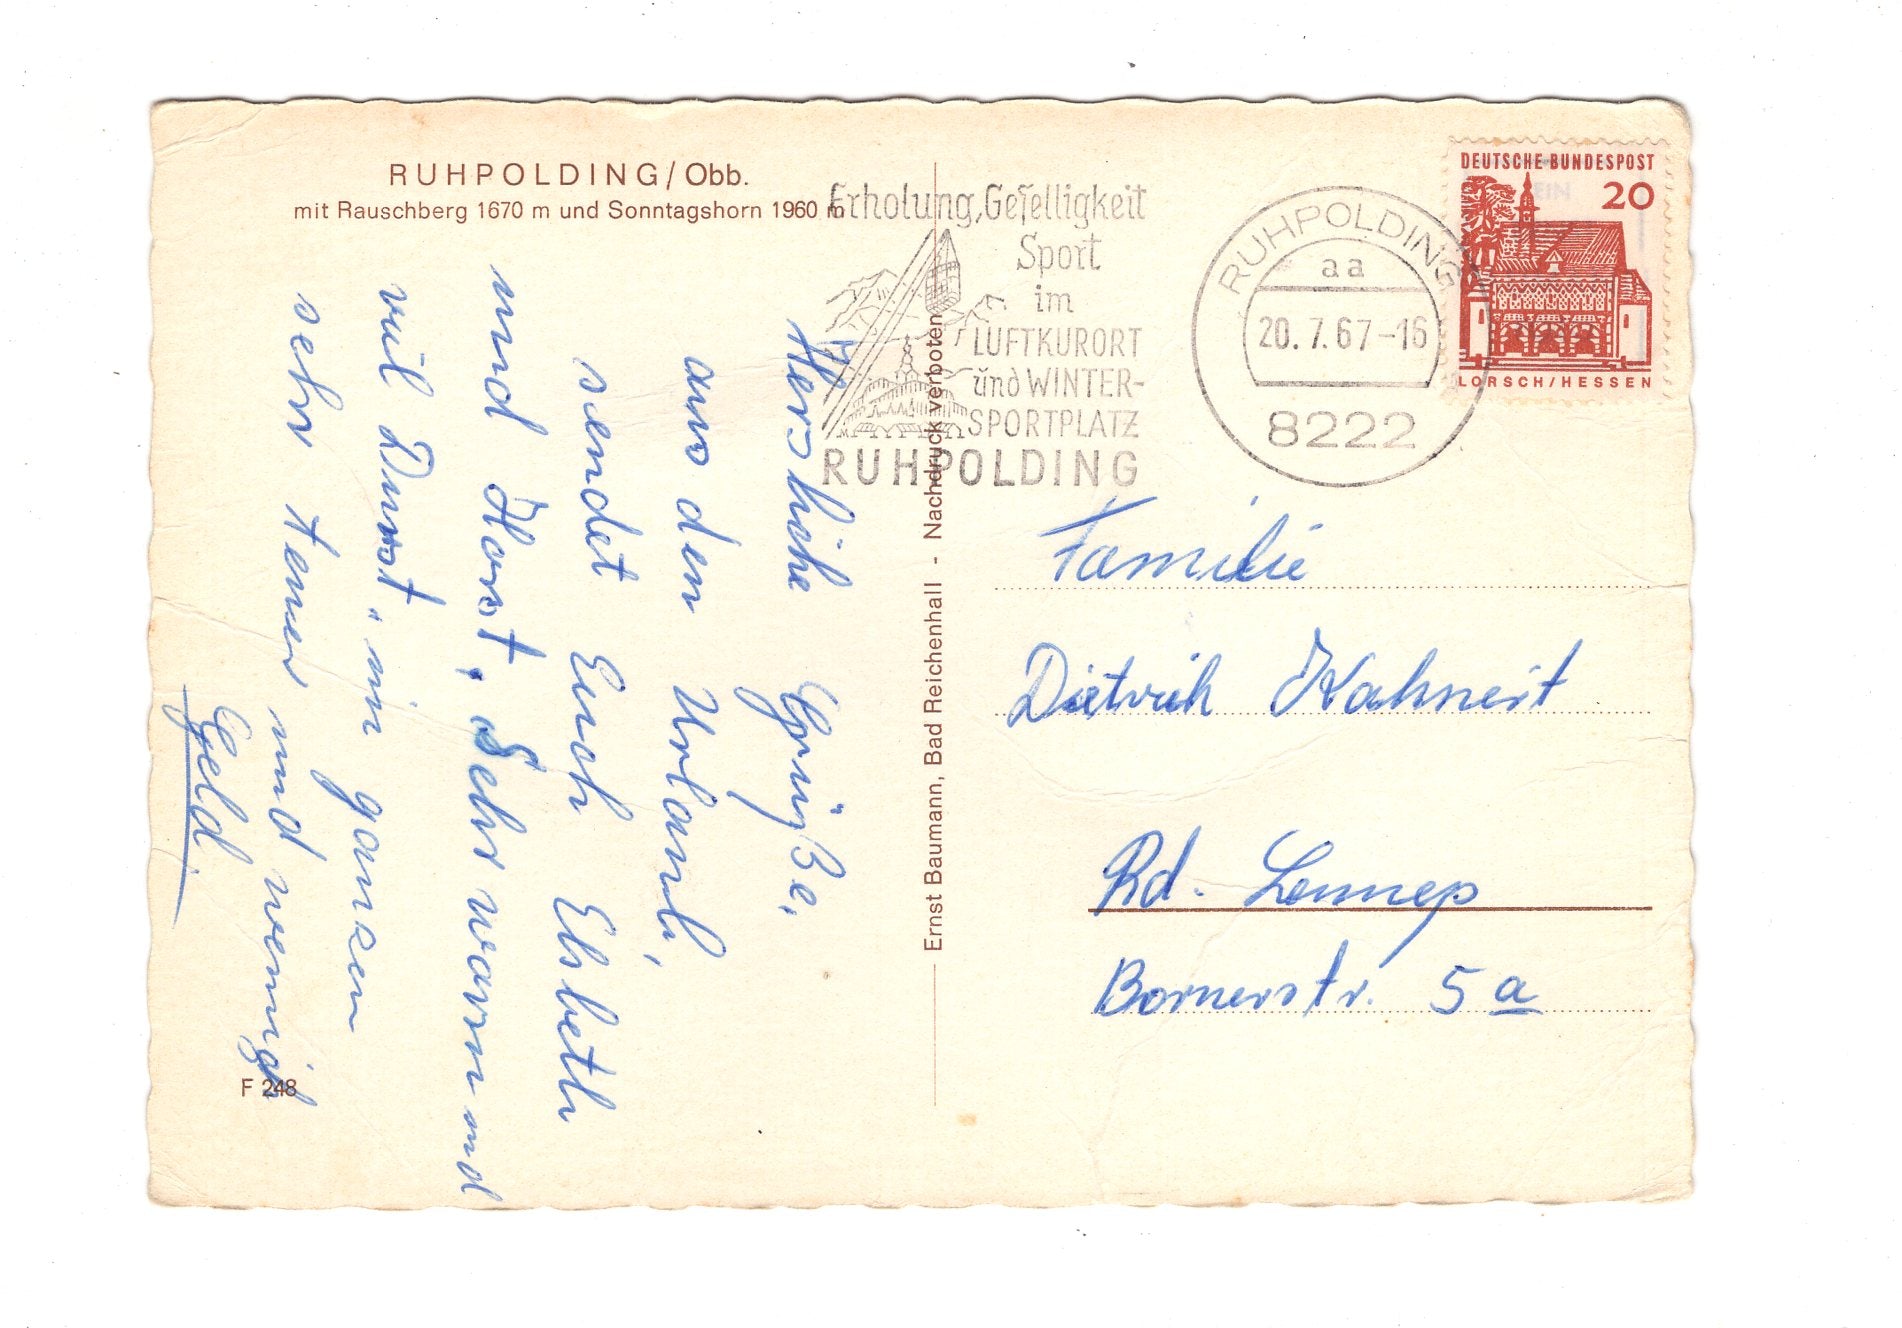 RUHPOLDING/Obb.
mit Rauschberg 1670 m und Sonntagshorn 1960 m
Erholung, Geselligkeit
Sport
im
LUFTKURORT
und WINTER-
SPORTPLATZ
RUHPOLDING
RUHPOLDING
aa
20.7.67-16
8222
DEUTSCHE BUNDESPOST
20
LORSCH/HESSEN
Herzliche Grüße,
aus dem Urlaub,
sendet Euch Elsbeth
und Horst, Sehr warm und
viel Durst, im ganzen
sehr teuer und wennig
Geld.
Ernst Baumann, Bad Reichenhall - Nachdruck verboten
Familie
Dietrich Kahnert
Rd. Lennep
Bornerstr. 5a
F 248